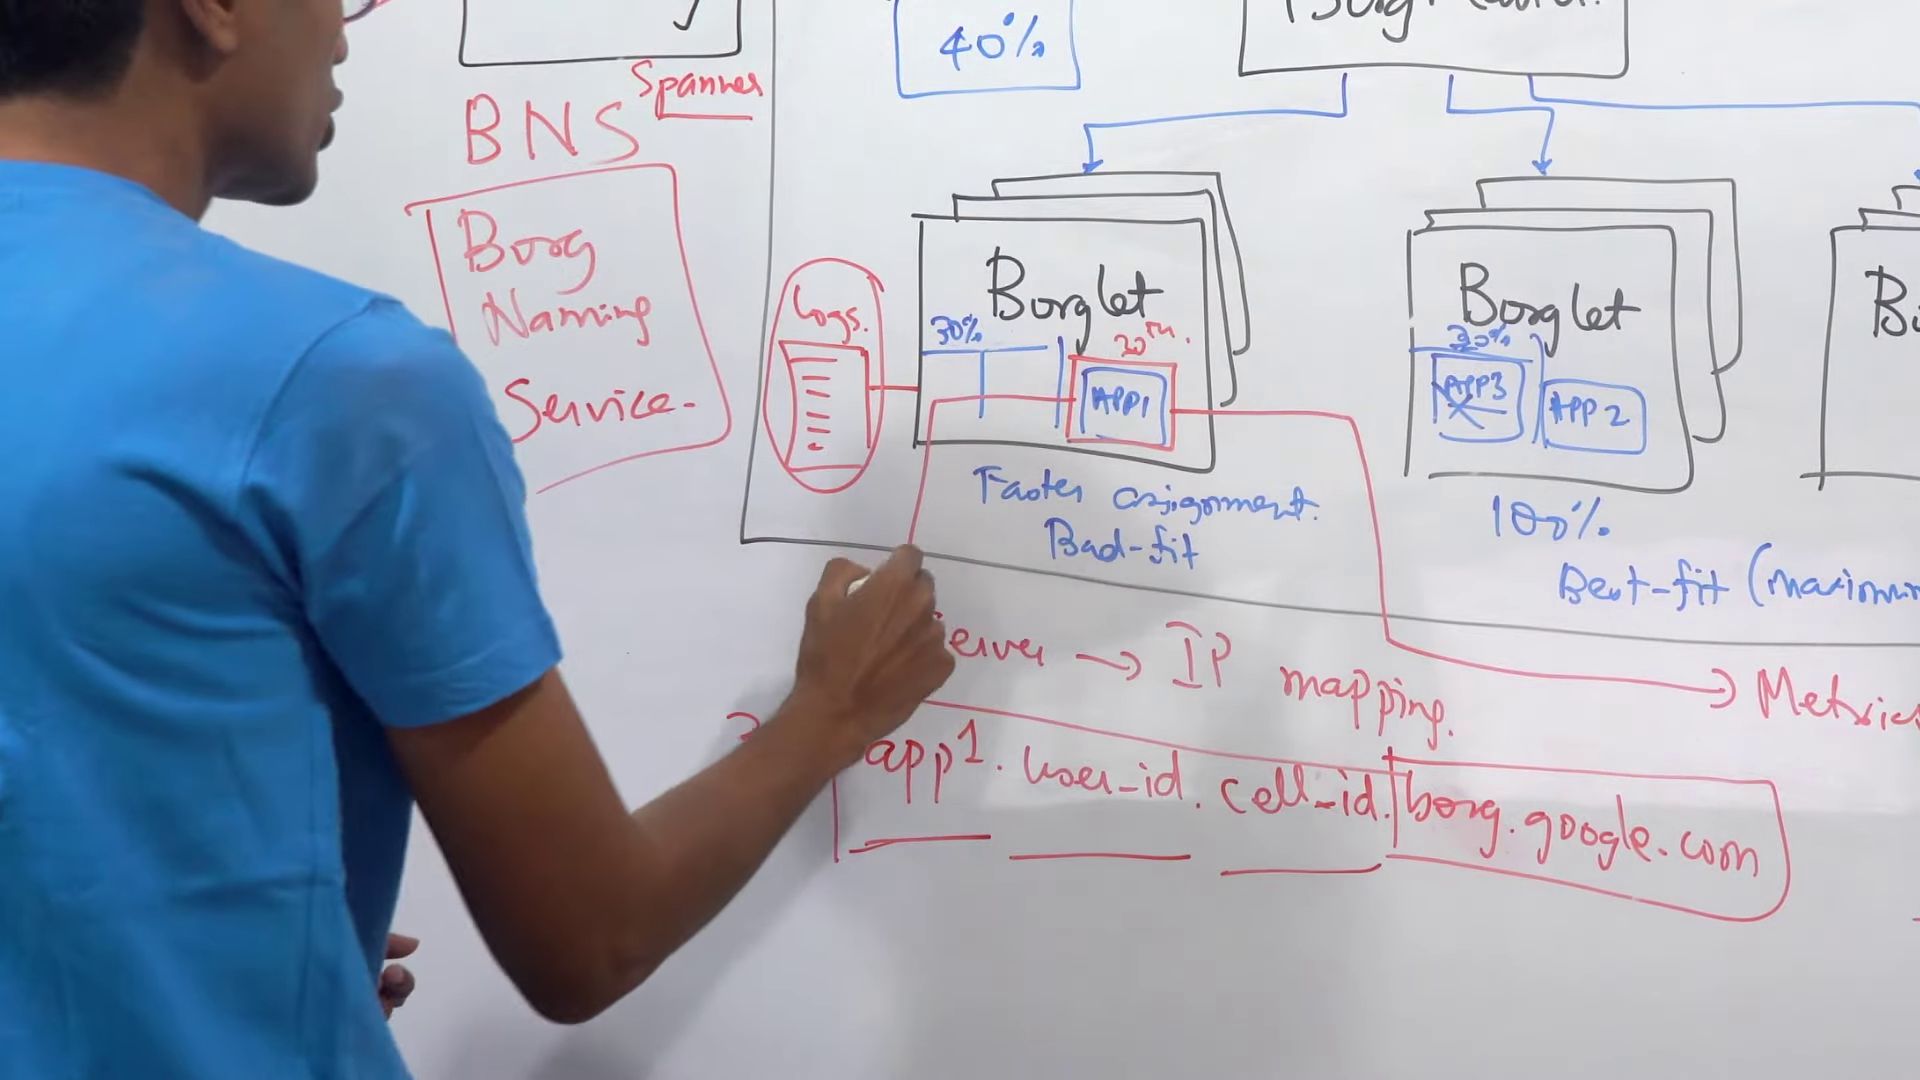 40%
Spanner
BNS
Borg
Naming
Service.
Logs.
Borglet
30%
20th.
APP1
Faster assignment.
Bad-fit
Borglet
APP3
APP 2
100%
Best-fit (
→ IP mapping.
→ Metrics
app1. user-id. cell-id. borg.google.com